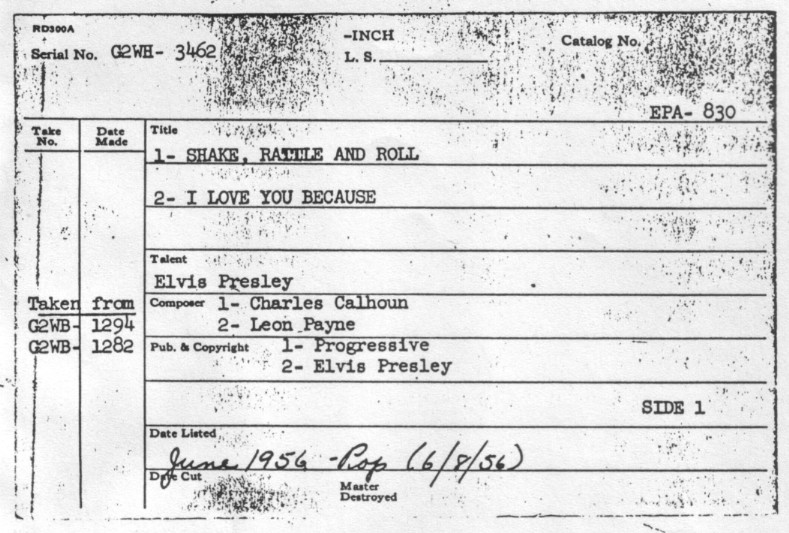 RD300A
-INCH
Serial No. G2WH- 3462
L. S.
Catalog No.
EPA- 830
Take No.
Date Made
Title
1- SHAKE, RATTLE AND ROLL
2- I LOVE YOU BECAUSE
Talent
Elvis Presley
Taken from
Composer 1- Charles Calhoun
G2WB- 1294
2- Leon Payne
G2WB- 1282
Pub. & Copyright 1- Progressive
2- Elvis Presley
SIDE 1
Date Listed
June 1956 - Pop (6/8/56)
Date Cut
Master
Destroyed